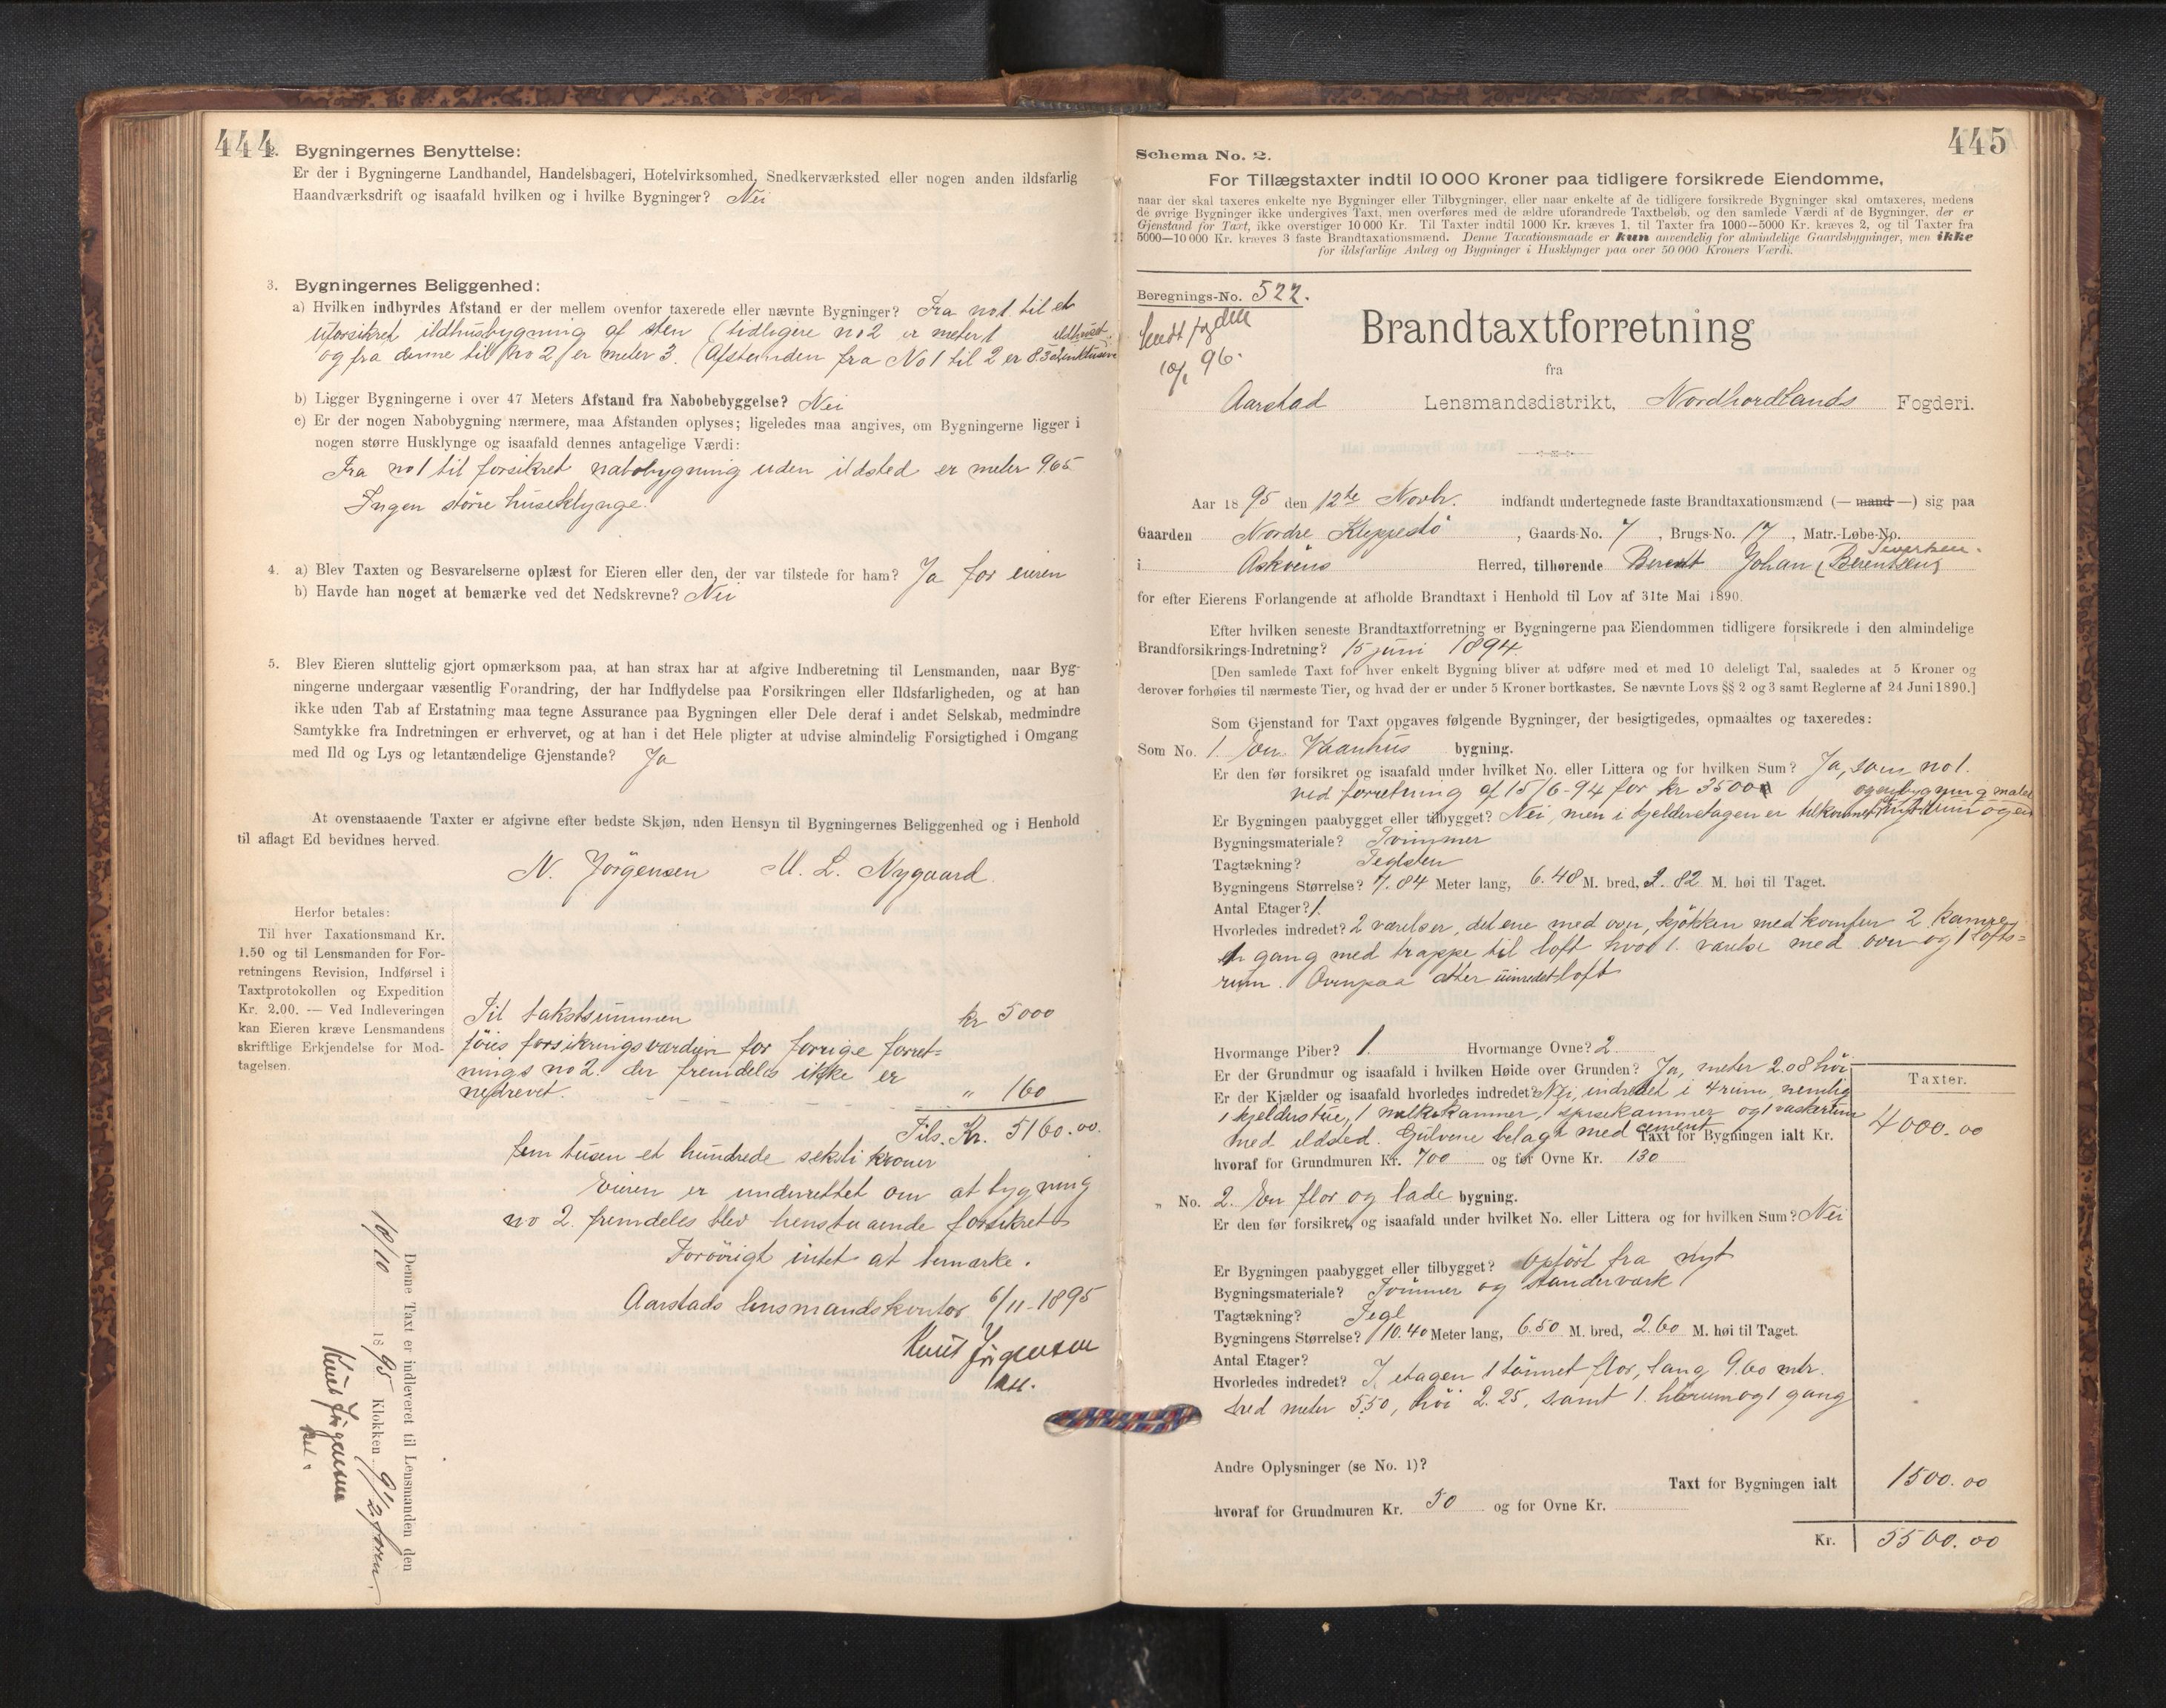 444
2. Bygningernes Benyttelse:
Er der i Bygningerne Landhandel, Handelsbageri, Hotelvirksomhed, Snedkerværksted eller nogen anden ildsfarlig
Haandværksdrift og isaafald hvilken og i hvilke Bygninger? Nei
3. Bygningernes Beliggenhed:
a) Hvilken indbyrdes Afstand er der mellem ovenfor taxerede eller nævnte Bygninger? Fra no 1. til et
uforsikret ildhusbygning af sten (tidligere no 2 er meter 1 ildhuset
og fra denne til No 2 er meter 3. (Afstanden fra No 1 til 2 er 8.5
b) Ligger Bygningerne i over 47 Meters Afstand fra Nabobebyggelse? Nei
c) Er der nogen Nabobygning nærmere, maa Afstanden oplyses; ligeledes maa angives, om Bygningerne ligger i
nogen større Husklynge og isaafald dennes antagelige Værdi:
Fra no 1 til forsikret nabobygning uden ildsted er meter 965
Ingen større huseklynge.
4. a) Blev Taxten og Besvarelserne oplæst for Eieren eller den, der var tilstede for ham? Ja for eieren
b) Havde han noget at bemærke ved det Nedskrevne? Nei
5. Blev Eieren sluttelig gjort opmærksom paa, at han strax har at afgive Indberetning til Lensmanden, naar Byg-
ningerne undergaar væsentlig Forandring, der har Indflydelse paa Forsikringen eller Ildsfarligheden, og at han
ikke uden Tab af Erstatning maa tegne Assurance paa Bygningen eller Dele deraf i andet Selskab, medmindre
Samtykke fra Indretningen er erhvervet, og at han i det Hele pligter at udvise almindelig Forsigtighed i Omgang
med Ild og Lys og letantændelige Gjenstande? Ja
At ovenstaaende Taxter er afgivne efter bedste Skjøn, uden Hensyn til Bygningernes Beliggenhed og i Henhold
til aflagt Ed bevidnes herved.
N. Jörgensen M. L. Nygaard.
Herfor betales:
Til hver Taxationsmand Kr.
1.50 og til Lensmanden for For-
retningens Revision, Indførsel i
Taxtprotokollen og Expedition
Kr. 2.00. — Ved Indleveringen
kan Eieren kræve Lensmandens
skriftlige Erkjendelse for Mod-
tagelsen.
Til takstsummen kr 5000
föies forsikringsværdien for forrige forret-
nings no 2. der fremdeles ikke er
nedrevet. " 160
Tils. Kr. 5160.00.
fem tusen et hundrede seksti kroner
Eieren er underrettet om at bygning
no 2. fremdeles blev henstaaende forsikret
Forövrigt intet at bemærke.
Aarstads lensmandskontor 6/11-1895
Knut Jörgensen
Denne Taxt er indleveret til Lensmanden den
18/10 1895 Klokken 9 1/2 form.
Knut Jörgensen
445
Schema No. 2.
For Tillægstaxter indtil 10 000 Kroner paa tidligere forsikrede Eiendomme,
naar der skal taxeres enkelte nye Bygninger eller Tilbygninger, eller naar enkelte af de tidligere forsikrede Bygninger skal omtaxeres, medens
de øvrige Bygninger ikke undergives Taxt, men overføres med de ældre uforandrede Taxtbeløb, og den samlede Værdi af de Bygninger, der er
Gjenstand for Taxt, ikke overstiger 10 000 Kr. Til Taxter indtil 1000 Kr. kræves 1, til Taxter fra 1000—5000 Kr. kræves 2, og til Taxter fra
5000—10 000 Kr. kræves 3 faste Brandtaxationsmænd. Denne Taxationsmaade er kun anvendelig for almindelige Gaardsbygninger, men ikke
for ildsfarlige Anlæg og Bygninger i Husklynger paa over 50 000 Kroners Værdi.
Beregnings-No. 522.
10/1 96.
Brandtaxtforretning
fra
Aarstad Lensmandsdistrikt, Nordhordlands Fogderi.
Aar 1895 den 12te Novbr. indfandt undertegnede faste Brandtaxationsmænd (— mand —) sig paa
Gaarden Nordre Kleppestö, Gaards-No. 7, Brugs-No. 17, Matr.-Løbe-No.
i Askøens Herred, tilhørende Berent Johan (Berentsen) Sivertsen.
for efter Eierens Forlangende at afholde Brandtaxt i Henhold til Lov af 31te Mai 1890.
Efter hvilken seneste Brandtaxtforretning er Bygningerne paa Eiendommen tidligere forsikrede i den almindelige
Brandforsikrings-Indretning? 15 juni 1894.
[Den samlede Taxt for hver enkelt Bygning bliver at udføre med et med 10 deleligt Tal, saaledes at 5 Kroner og
derover forhøies til nærmeste Tier, og hvad der er under 5 Kroner bortkastes. Se nævnte Lovs §§ 2 og 3 samt Reglerne af 24 Juni 1890.]
Som Gjenstand for Taxt opgaves følgende Bygninger, der besigtigedes, opmaaltes og taxeredes:
Som No. 1. En Vaanhus bygning.
Er den før forsikret og isaafald under hvilket No. eller Littera og for hvilken Sum? Ja, som no 1.
ved forretning af 15/6-94 for kr 3500
og en bygning malet
Er Bygningen paabygget eller tilbygget? Nei, men i kjelderetagen er tilkommet
Bygningsmateriale? Tömmer
Tagtækning? Teglsten
Bygningens Størrelse? 7.84 Meter lang, 6.48 M. bred, 3.82 M. høi til Taget.
Antal Etager? 1.
Hvorledes indredet? 2 værelser, det ene med ovn, kjökken med komfur 2 kamre,
1 gang med trappe til loft hvor 1. værelse med ovn og 1 lofts-
rum. Ovenpaa atter uinredet loft
Hvormange Piber? 1. Hvormange Ovne? 2
Er der Grundmur og isaafald i hvilken Høide over Grunden? Ja, meter 2.08 höi
Er der Kjælder og isaafald hvorledes indredet? Nei, indredet i 4 rum, nemlig
1 kjelderstue, 1 melkekammer, 1 spisekammer og 1 vaskerum
med ildsted. Gulvene belagt med cement Taxt for Bygningen ialt Kr.
Taxter.
4000.00
hvoraf for Grundmuren Kr. 700 og for Ovne Kr. 130
" No. 2. En flor og lade bygning.
Er den før forsikret, og isaafald under hvilket No. eller Littera og for hvilken Sum? Nei
Er Bygningen paabygget eller tilbygget? Opfört fra nyt
Bygningsmateriale? Tömmer og standerværk
Tagtækning? Tegl
Bygningens Størrelse? 10.40 Meter lang, 6.50 M. bred, 2.60 M. høi til Taget.
Antal Etager?
Hvorledes indredet? I. etagen 1 tömret flor, lang 9.60 mtr.
bred meter 5.50, höi 2.25, samt 1. hörum og 1 gang
Andre Oplysninger (se No. 1)?
Taxt for Bygningen ialt 1500.00
hvoraf for Grundmuren Kr. 50 og for Ovne Kr.
Kr. 5500.00